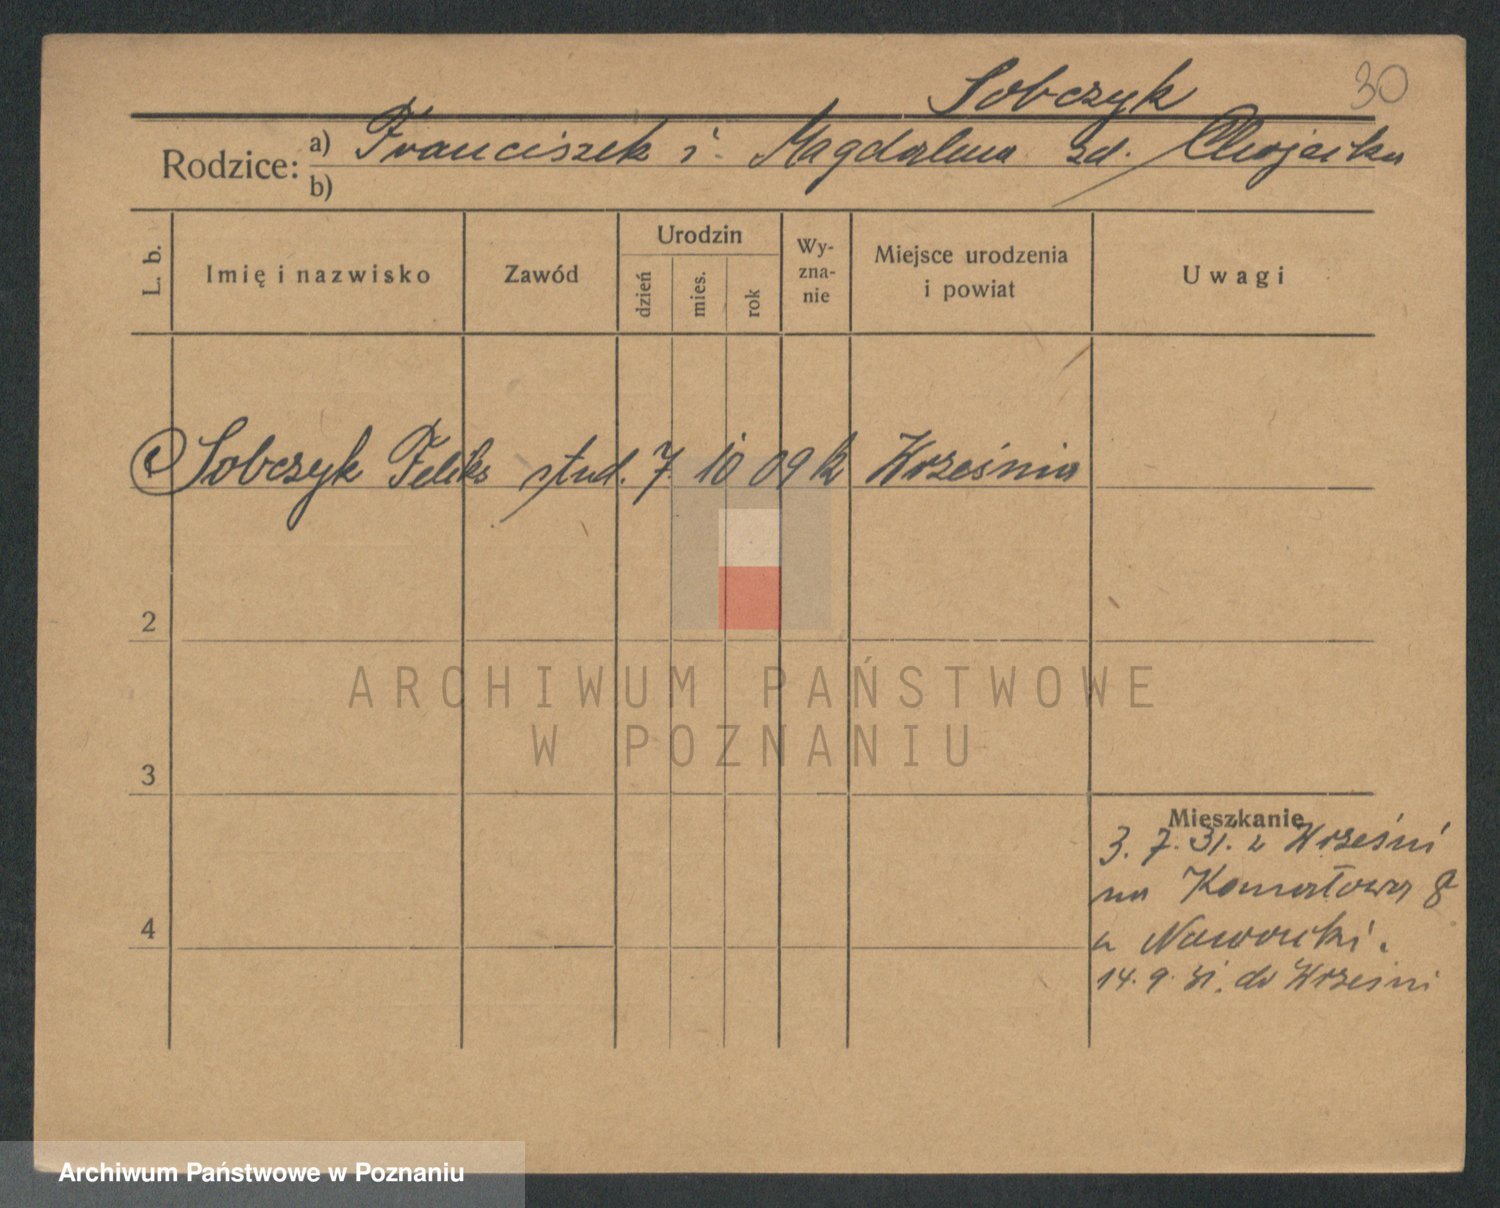 Sobczyk 30
Rodzice: a) Franciszek i Magdalena zd. Chojacka
b)
L. b. Imię i nazwisko Zawód Urodzin dzień mies. rok Wy-zna-nie Miejsce urodzenia i powiat Uwagi
1 Sobczyk Feliks stud. 7. 10 09 k Września
2
3
4
Mieszkanie
3. 7. 31. z Wrześni
na 8
u Nawrocki.
14. 9. 31. do Wrześni
ARCHIWUM PAŃSTWOWE
W POZNANIU
Archiwum Państwowe w Poznaniu